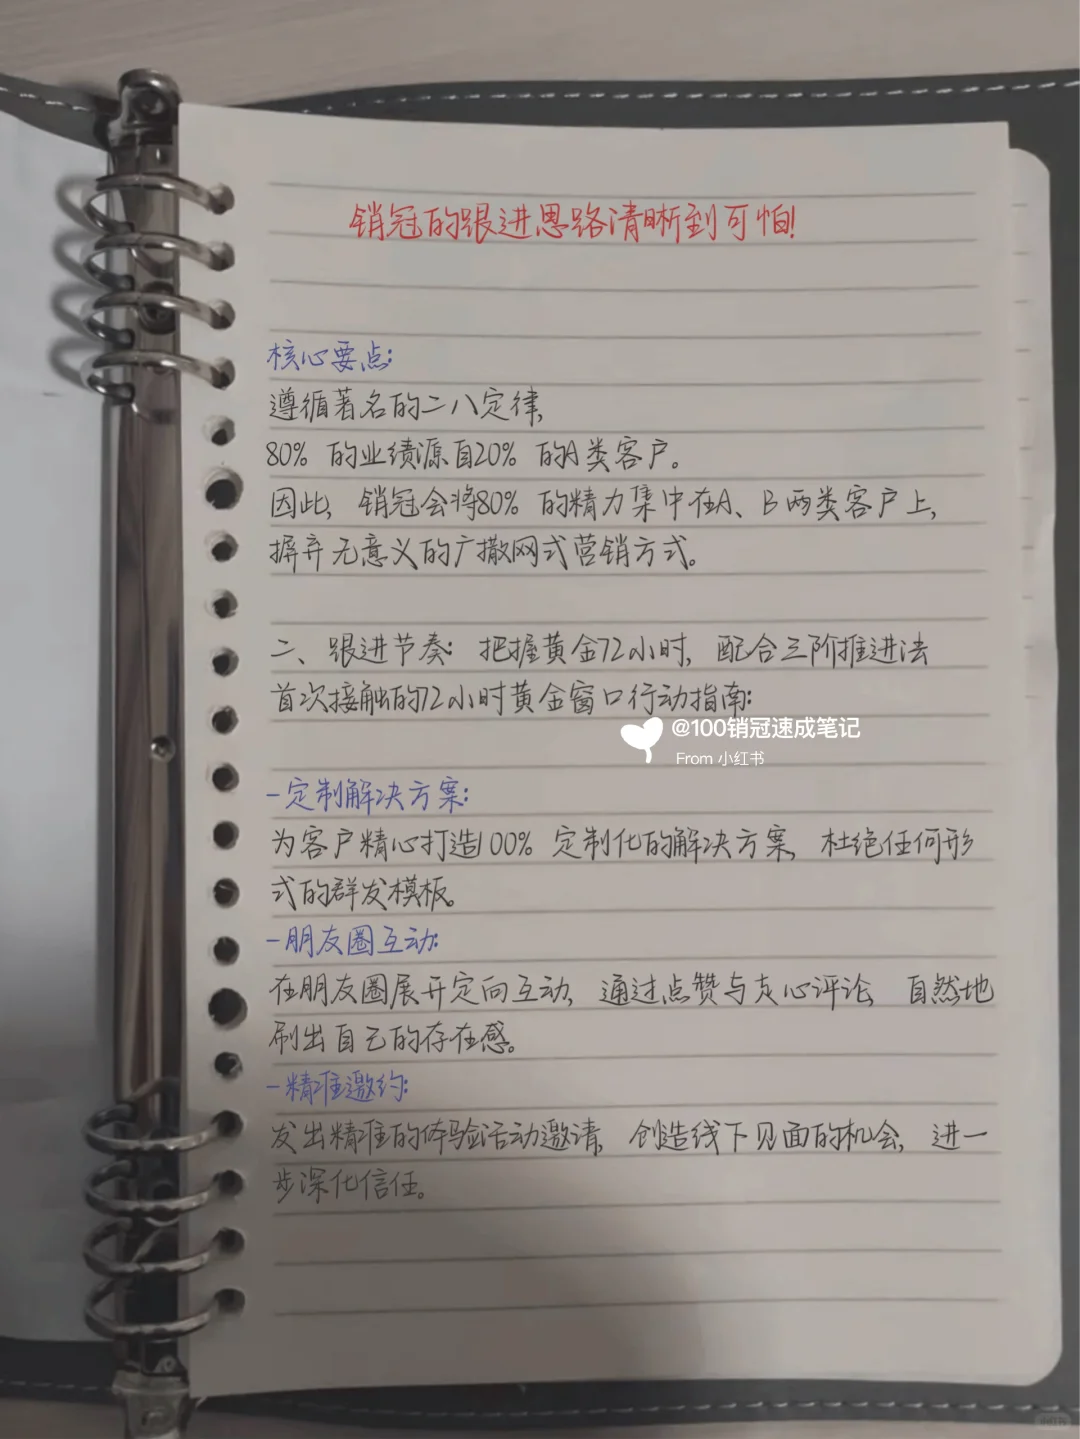 销冠的跟进思路清晰到可怕!
核心要点:
遵循著名的二八定律,
80% 的业绩源自20% 的A类客户。
因此, 销冠会将80% 的精力集中在A、B两类客户上,
摒弃无意义的广撒网式营销方式。
二、跟进节奏: 把握黄金72小时, 配合三阶推进法
首次接触的72小时黄金窗口行动指南:
@100销冠速成笔记
From 小红书
-定制解决方案:
为客户精心打造100% 定制化的解决方案, 杜绝任何形
式的群发模板。
-朋友圈互动:
在朋友圈展开定向互动, 通过点赞与走心评论, 自然地
刷出自己的存在感。
-精准邀约:
发出精准的体验活动邀请, 创造线下见面的机会, 进一
步深化信任。